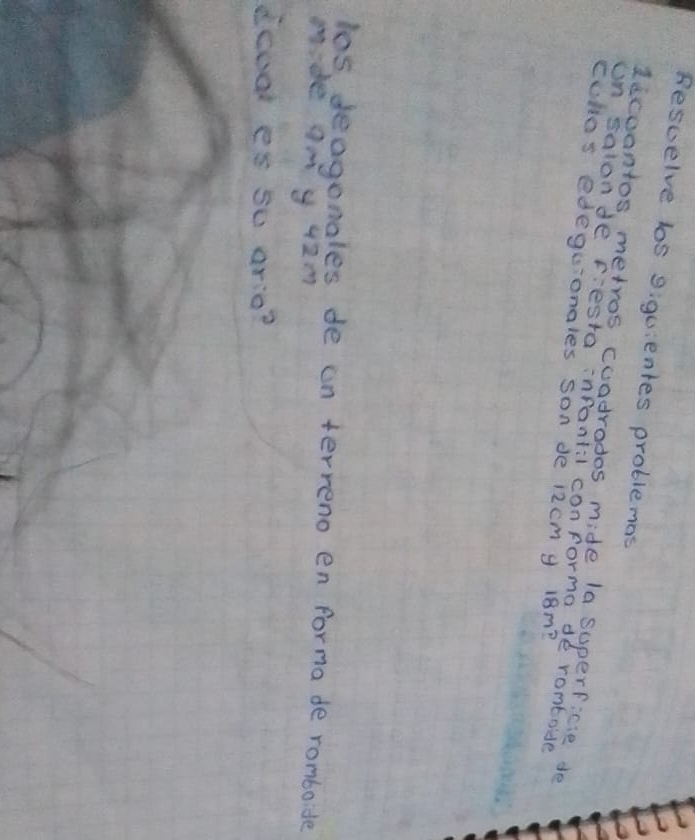 Resuelve los siguientes problemas
1¿cuantos metros cuadrados mide la superficie de
un salon de fiesta infantil con forma de romboide
cullas edeguionales son de 12cm y 18m?
los deagonales de un terreno en forma de romboide
mide 9m y 42m
¿cual es su aria?